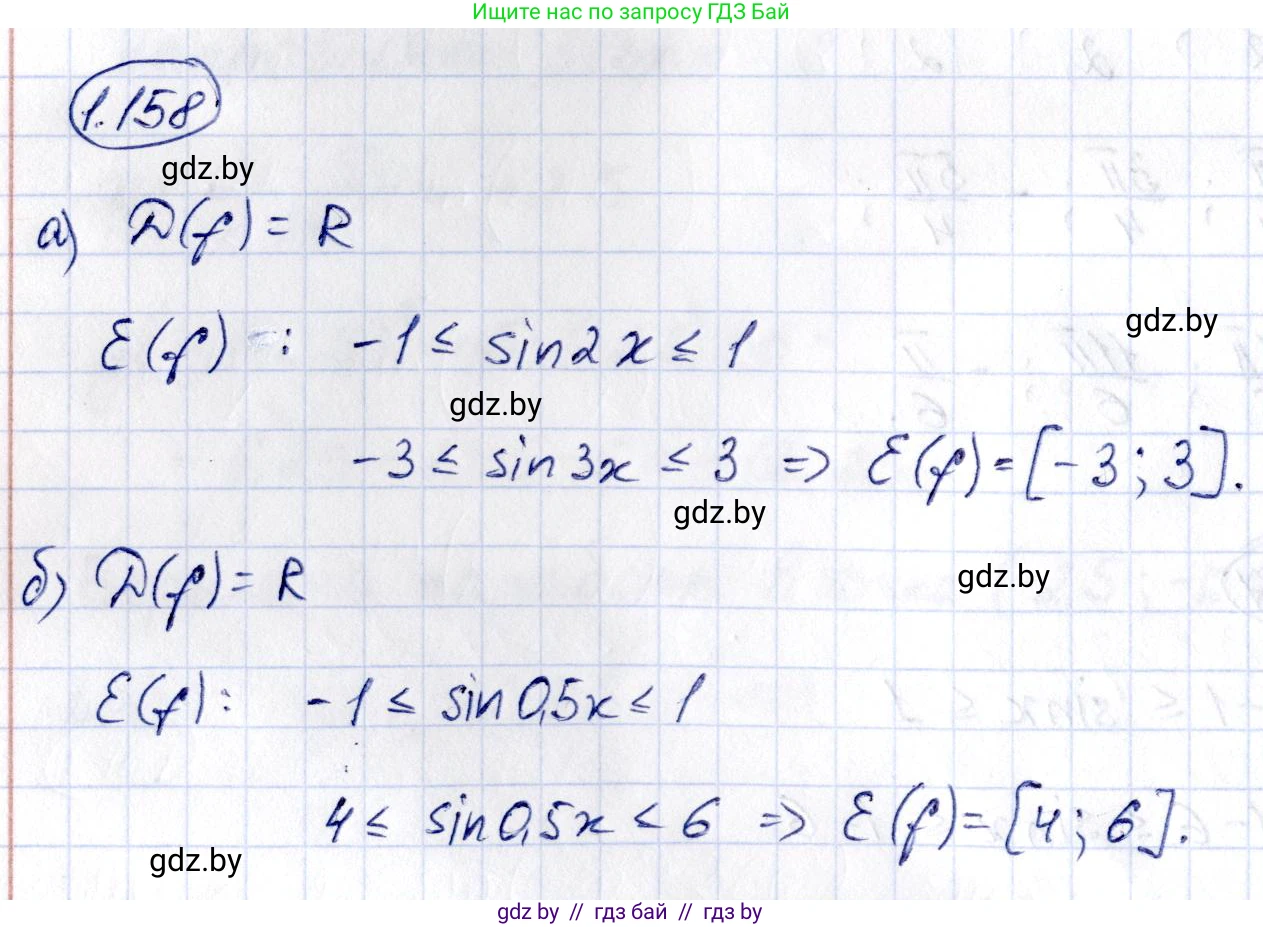 Ищите нас по запросу ГДЗ Бай
1.158
gdz.by
а) D(f) = R
E(f) : -1 ≤ sin 2x ≤ 1
gdz.by
gdz.by
-3 ≤ sin 3x ≤ 3 => E(f) = [-3; 3].
gdz.by
б) D(f) = R
gdz.by
E(f): -1 ≤ sin 0,5x ≤ 1
4 ≤ sin 0,5x ≤ 6 => E(f) = [4; 6].
gdz.by
gdz by // гдз бай // гдз by